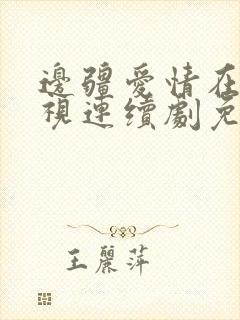 邊疆愛情在
視連續劇免
王麗萍